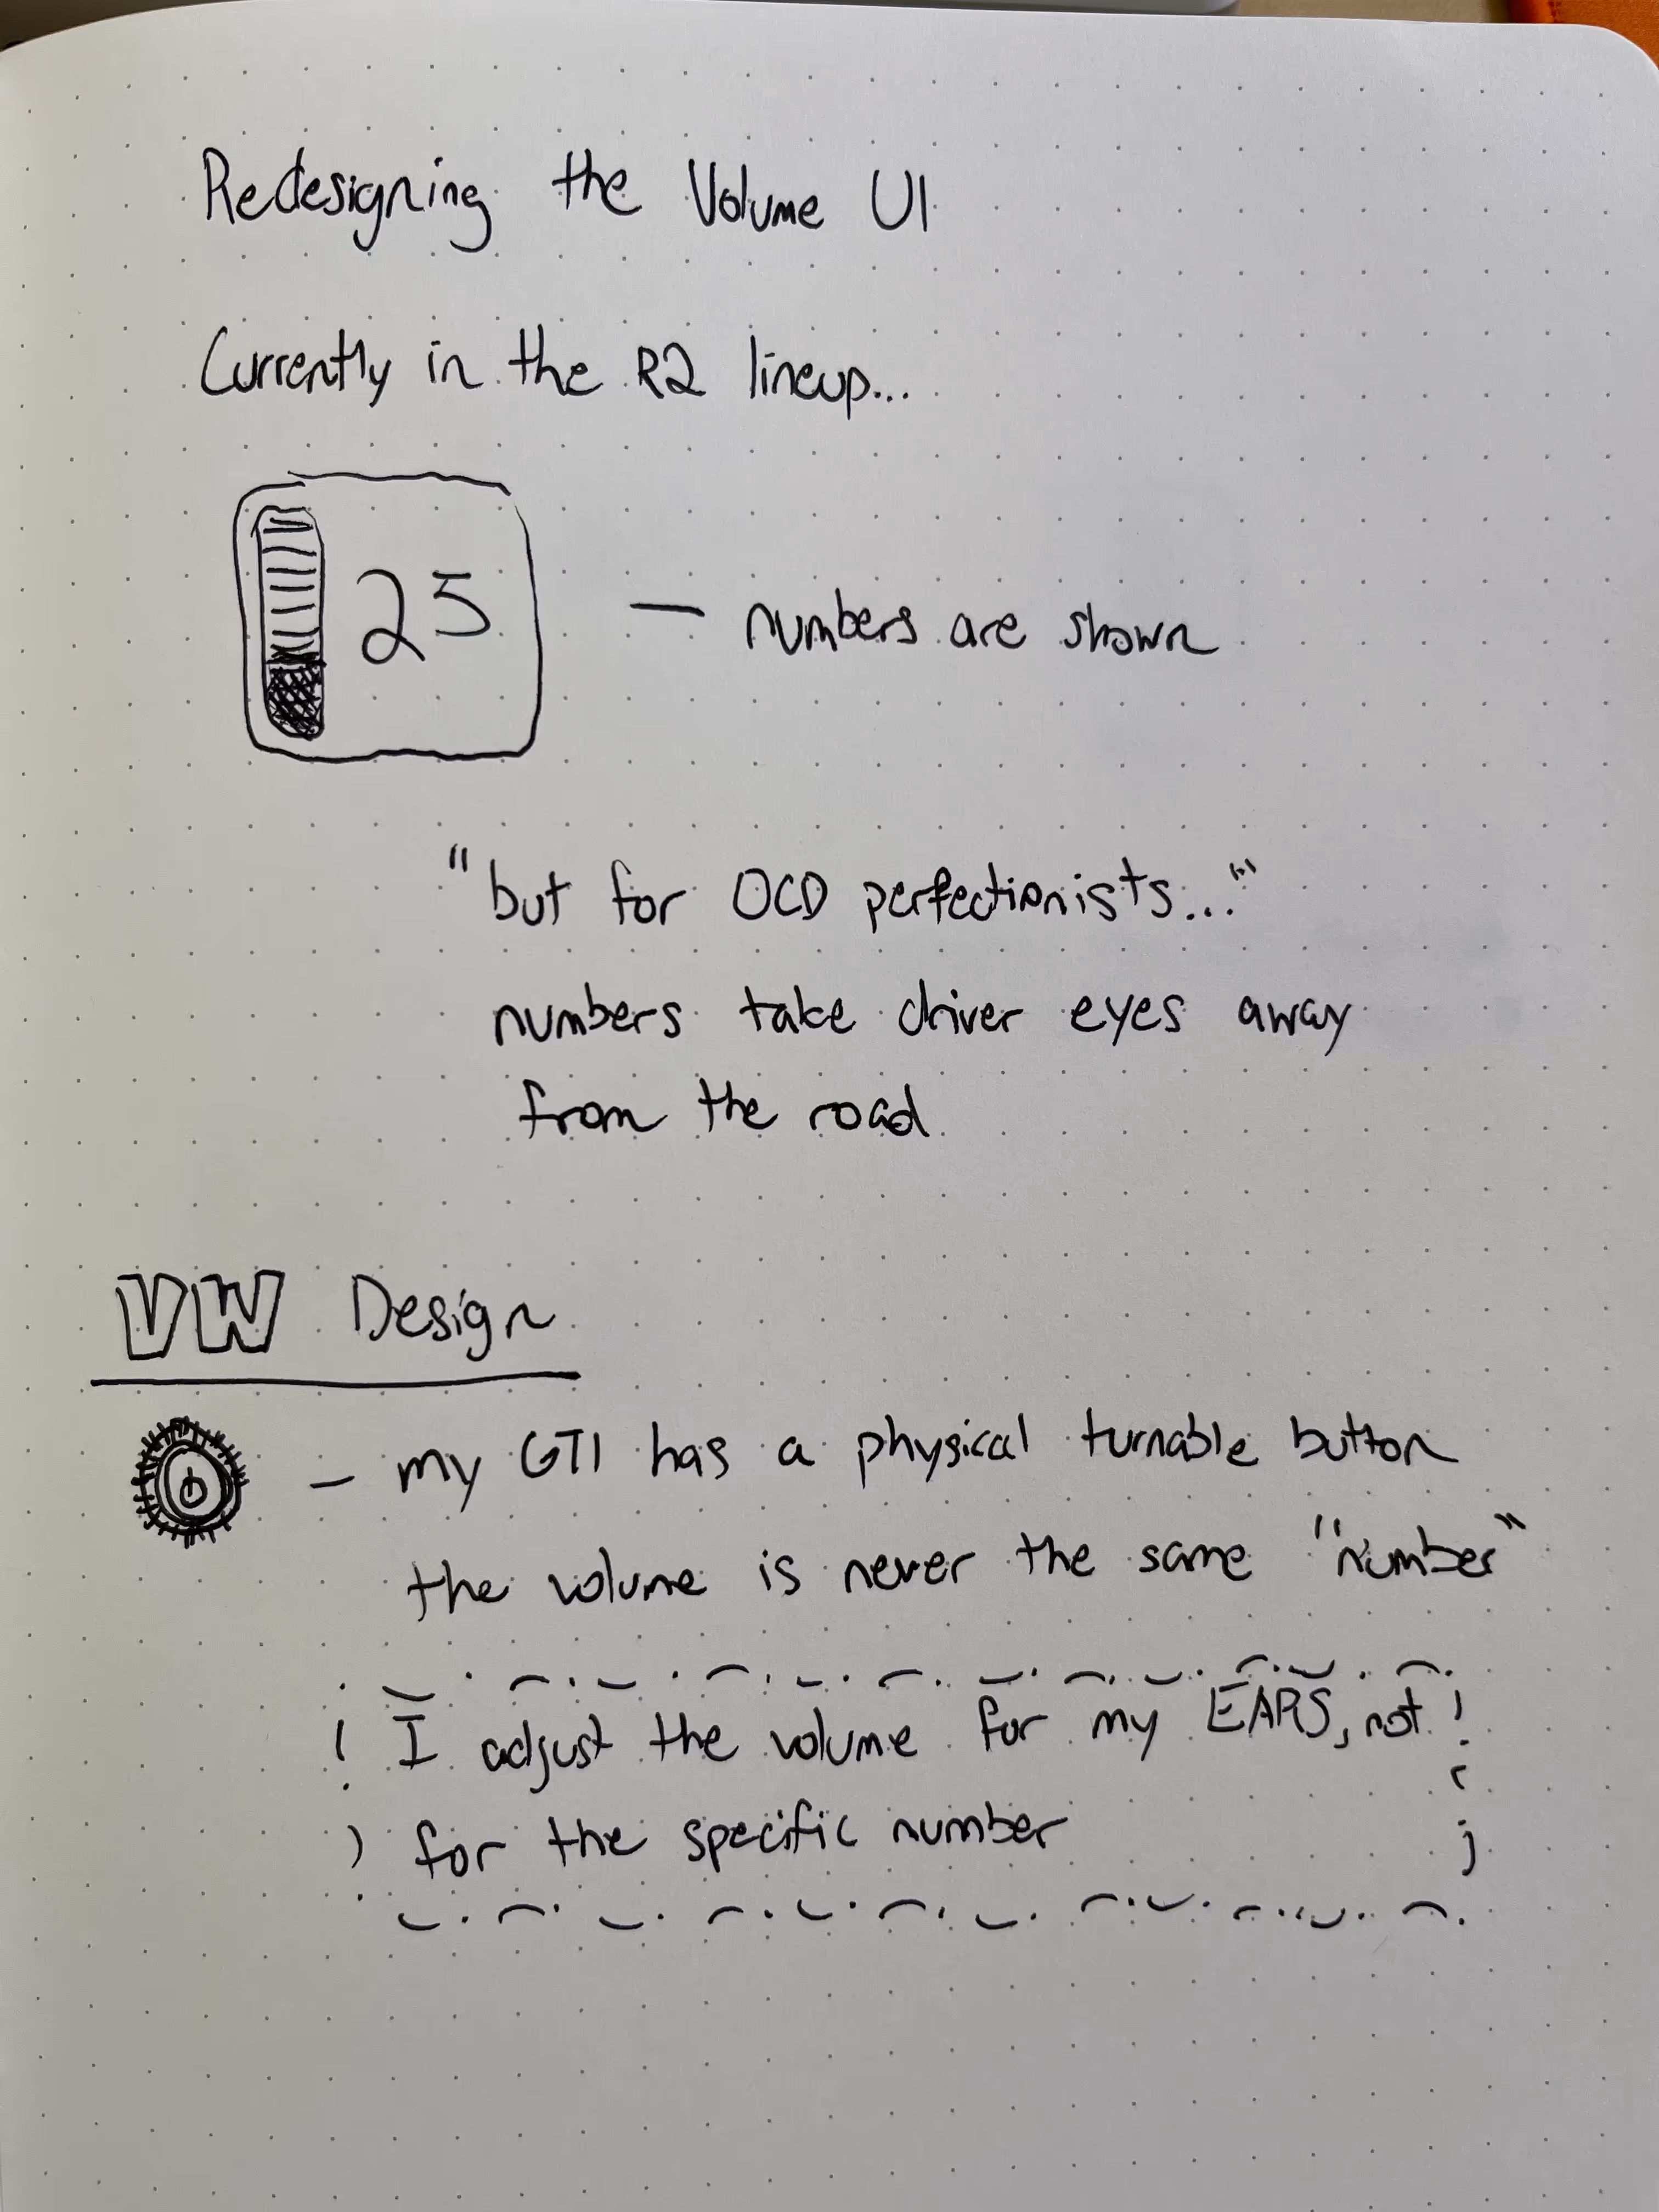 Redesigning the Volume UI
Currently in the R2 lineup...
25 — numbers are shown
"but for OCD perfectionists..."
numbers take driver eyes away
from the road
VW Design
– my GTI has a physical turnable button
the volume is never the same "number"
I adjust the volume for my EARS, not
for the specific number